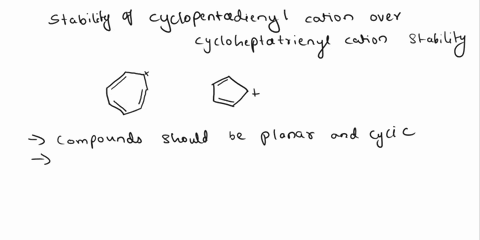 Stability of cyclopentadienyl cation over
cycloheptatrienyl cation stability
+
+
-> Compounds should be planar and cyclic
->